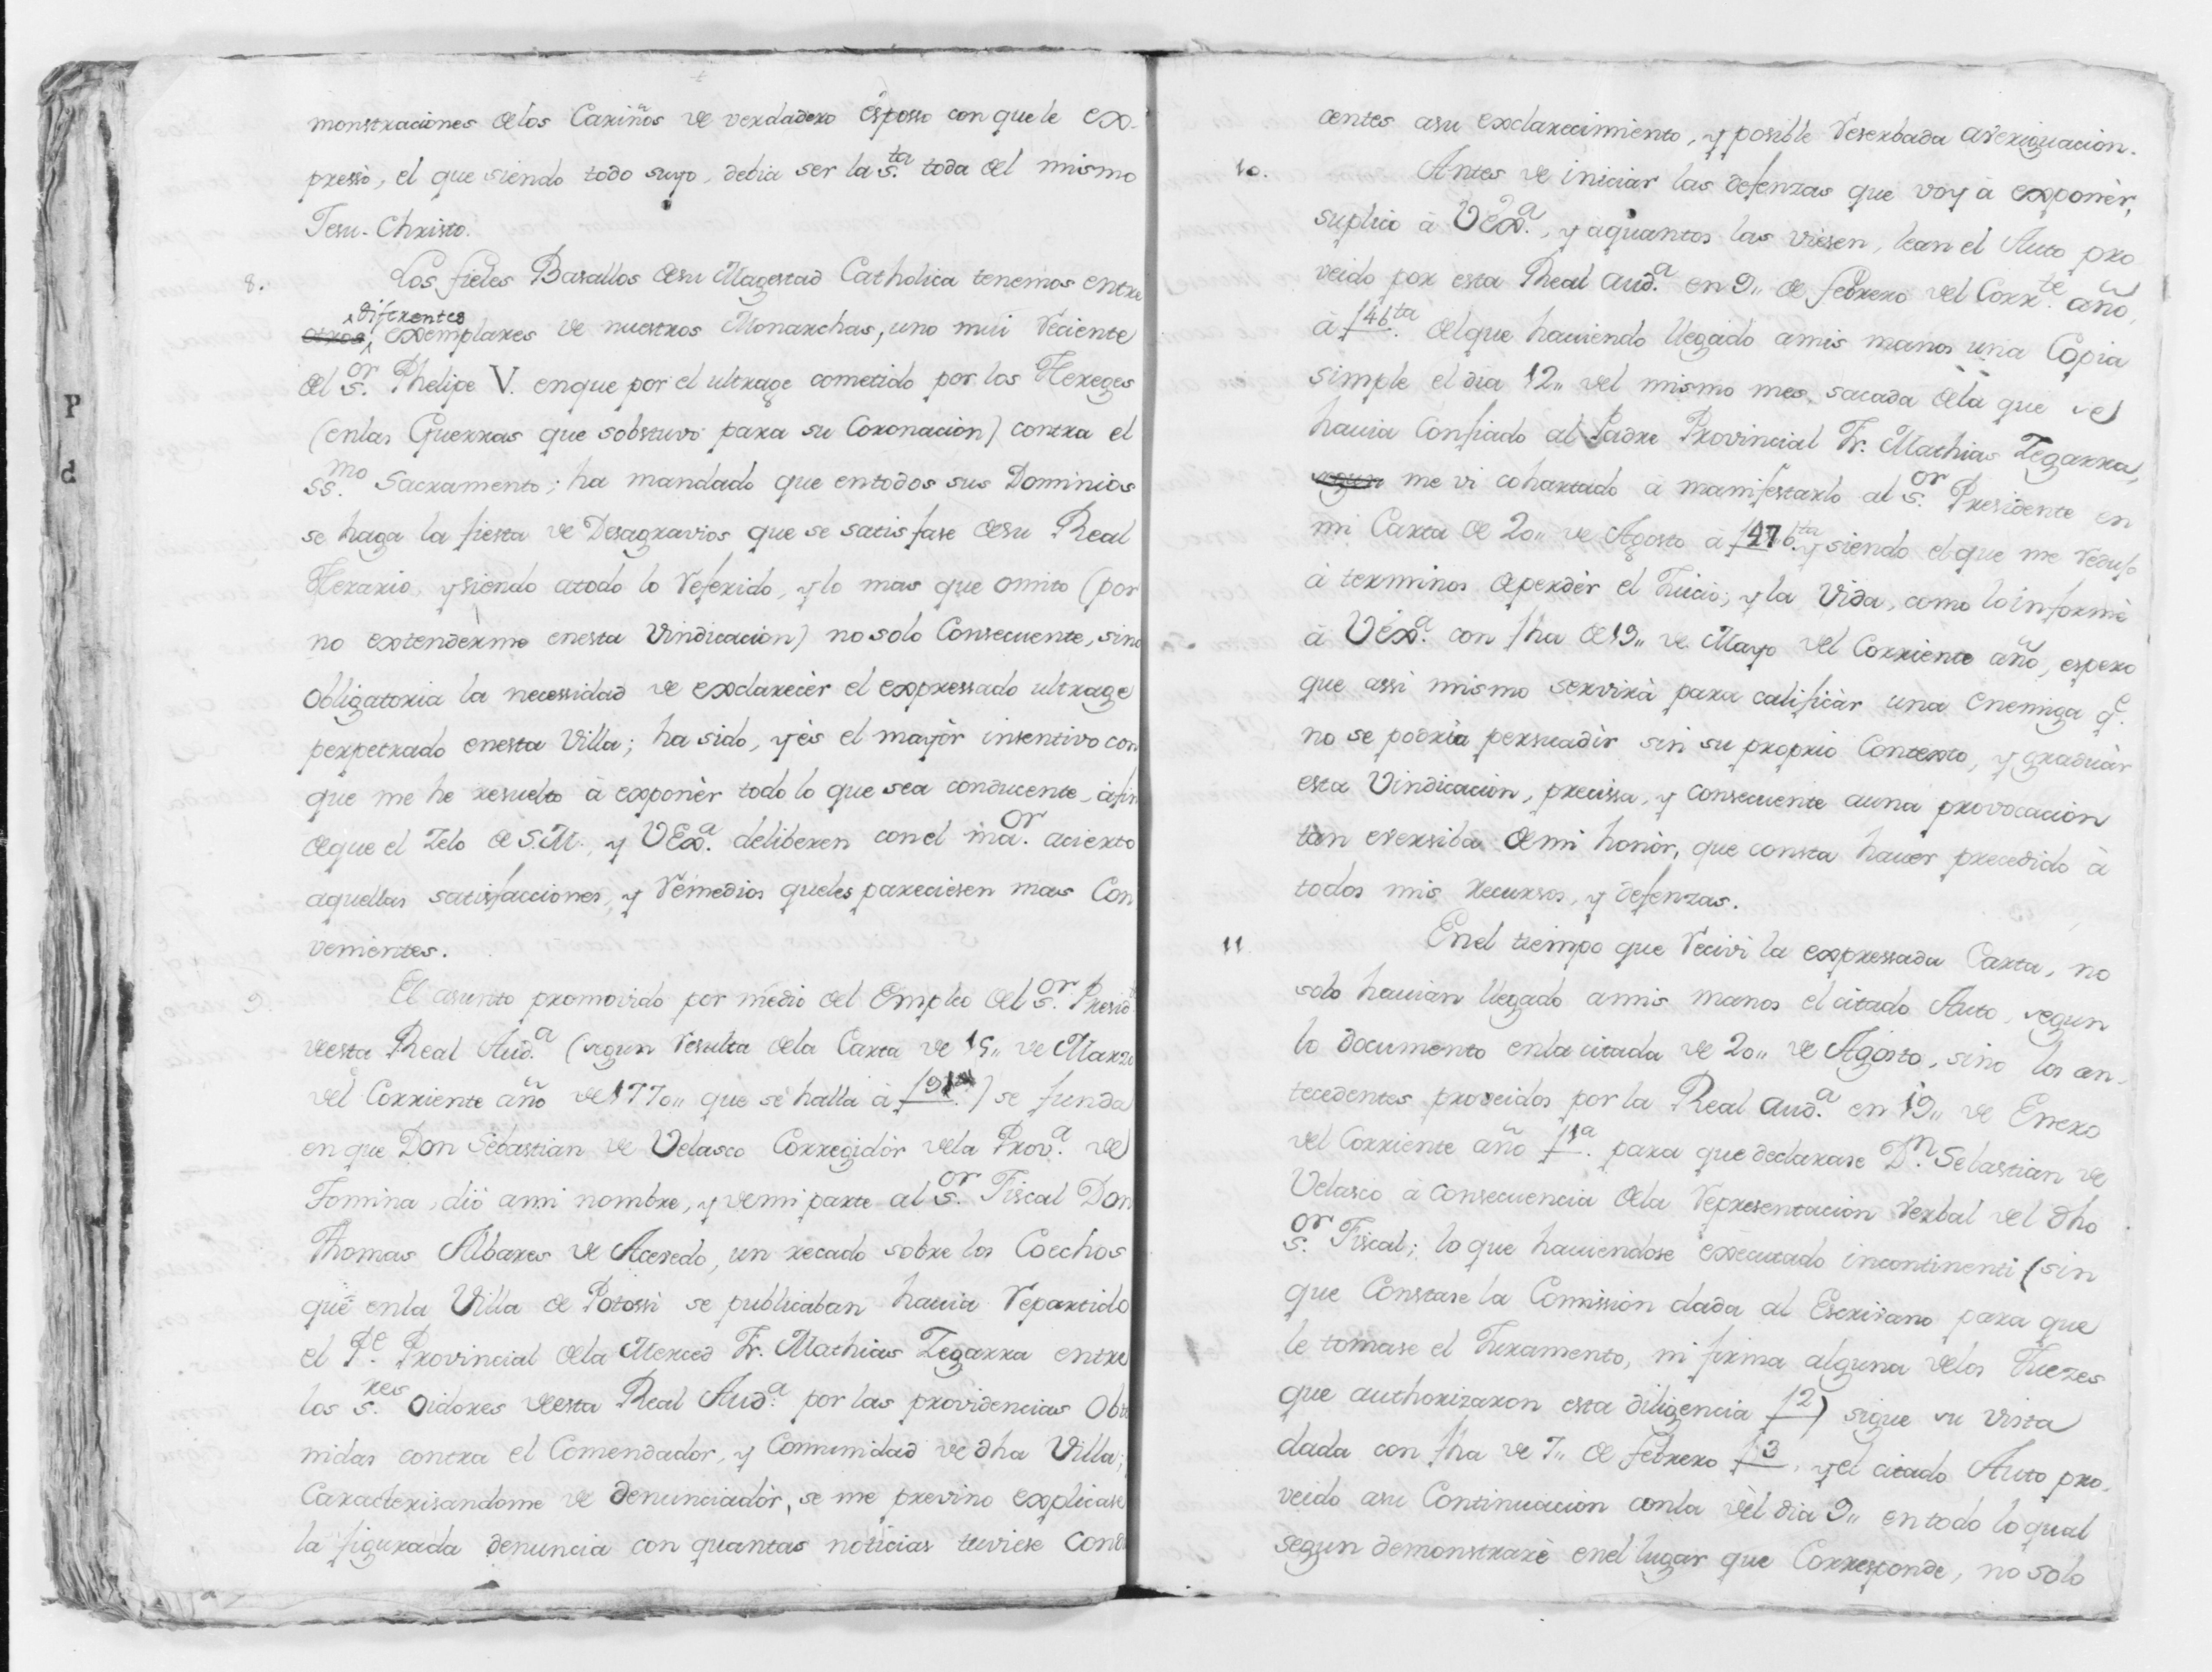 monstraciones delos Cariños de verdadero esposo con que le ex-
presò, el que siendo todo suyo, debia ser la s.ta toda del mismo
Jesu-Christo.
8. Los fieles Basallos desu Magestad Catholica tenemos entre
otros, diferentes exemplares de nuestros Monarchas, uno mui reciente
del s.or Phelipe V. enque por el ultrage cometido por los Hereges
(enlas Guerras que sobstuvo para su Coronacion) contra el
ss.mo Sacramento; ha mandado que entodos sus Dominios
se haga la fiesta de Desagravios que se satisfase desu Real
Herario, y siendo atodo lo referido, y lo mas que omito (por
no extenderme enesta Vindicacion) no solo Consecuente, sino
obligatoria la necessidad de exclarecèr el expressado ultrage
perpetrado enesta Villa; ha sido, y ès el mayòr insentivo con
que me he resuelto à exponèr todo lo que sea conducente, àfin
deque el Zelo de S.M., y VExa. deliberen con el ma.or acierto
aquellas satisfacciones, y remedios queles pareciesen mas Con
venientes.
9. El asunto promovido por medio del Empleo del s.or Presid.
deesta Real Aud.a (segun resulta dela Carta de 15,, de Marzo
del Corriente año de 1770,, que se halla à f 91) se funda
en que Don Sebastian de Velasco Corregidòr dela Prov.a de
Tomina, diò ami nombre, y demi parte al s.or Fiscal Don
Thomas Albares de Acevedo, un recado sobre los Coechos
que enla Villa de Potossi se publicaban havia repartido
el P.e Provincial dela Merced Fr. Mathias Zegarra entre
los s.res Oidores deesta Real Aud.a por las providencias Obte
nidas contra el Comendador, y Comunidad de dha Villa;
Caracterisandome de denunciadòr, se me previno explicase
la figurada denuncia con quantas noticias tuviese Condu
centes asu exclarecimiento, y posible reserbada averiguacion.
10. Antes de iniciar las defenzas que voy à exponèr,
suplico à VExa., y aquantos las viesen, lean el Auto pro
veido por esta Real Aud.a en 9,, de febrero del Corr.te año,
à f 46ta. delque haviendo llegado amis manos una Copia
simple el dia 12,, del mismo mes, sacada dela que se
havia Confiado al Padre Provincial Fr. Mathias Zegarra,
segun me vi cohartado à manifestarlo al s.or Presidente en
mi Carta de 20,, de Agosto à f 176ta y siendo el que me redujo
à terminos deperdèr el Juicio; y la Vida, como lo informè
à VExa. con fha de 19,, de Mayo del Corriente año, espero
que assi mismo servirà para calificàr una enemiga q.e
no se podria persuadìr sin su proprio Contexto, y graduàr
esta Vindicacion, precissa, y consecuente auna provocacion
tan eversiba demi honòr, que consta haver precedido à
todos mis recursos, y defenzas.
11. Enel tiempo que recivi la expressada Carta, no
solo havian llegado amis manos el citado Auto, segun
lo documento enla citada de 20,, de Agosto, sino los an-
tecedentes proveidos por la Real Aud.a en 19,, de Enero
del Corriente año f 1a. para que declarase D.n Sebastian de
Velasco à consecuencia dela representacion verbal del dho
s.or Fiscal; lo que haviendose executado incontinenti (sin
que Constase la Comission dada al Escrivano para que
le tomase el Juramento, ni firma alguna delos Juezes
que authorizaron esta diligencia f 2) sigue su vista
dada con fha de 7,, de febrero f 3, y el citado Auto pro-
veido asu Continuacion conla dèl dia 9,, en todo lo qual
segun demonstrarè enel lugar que Corresponde, no solo